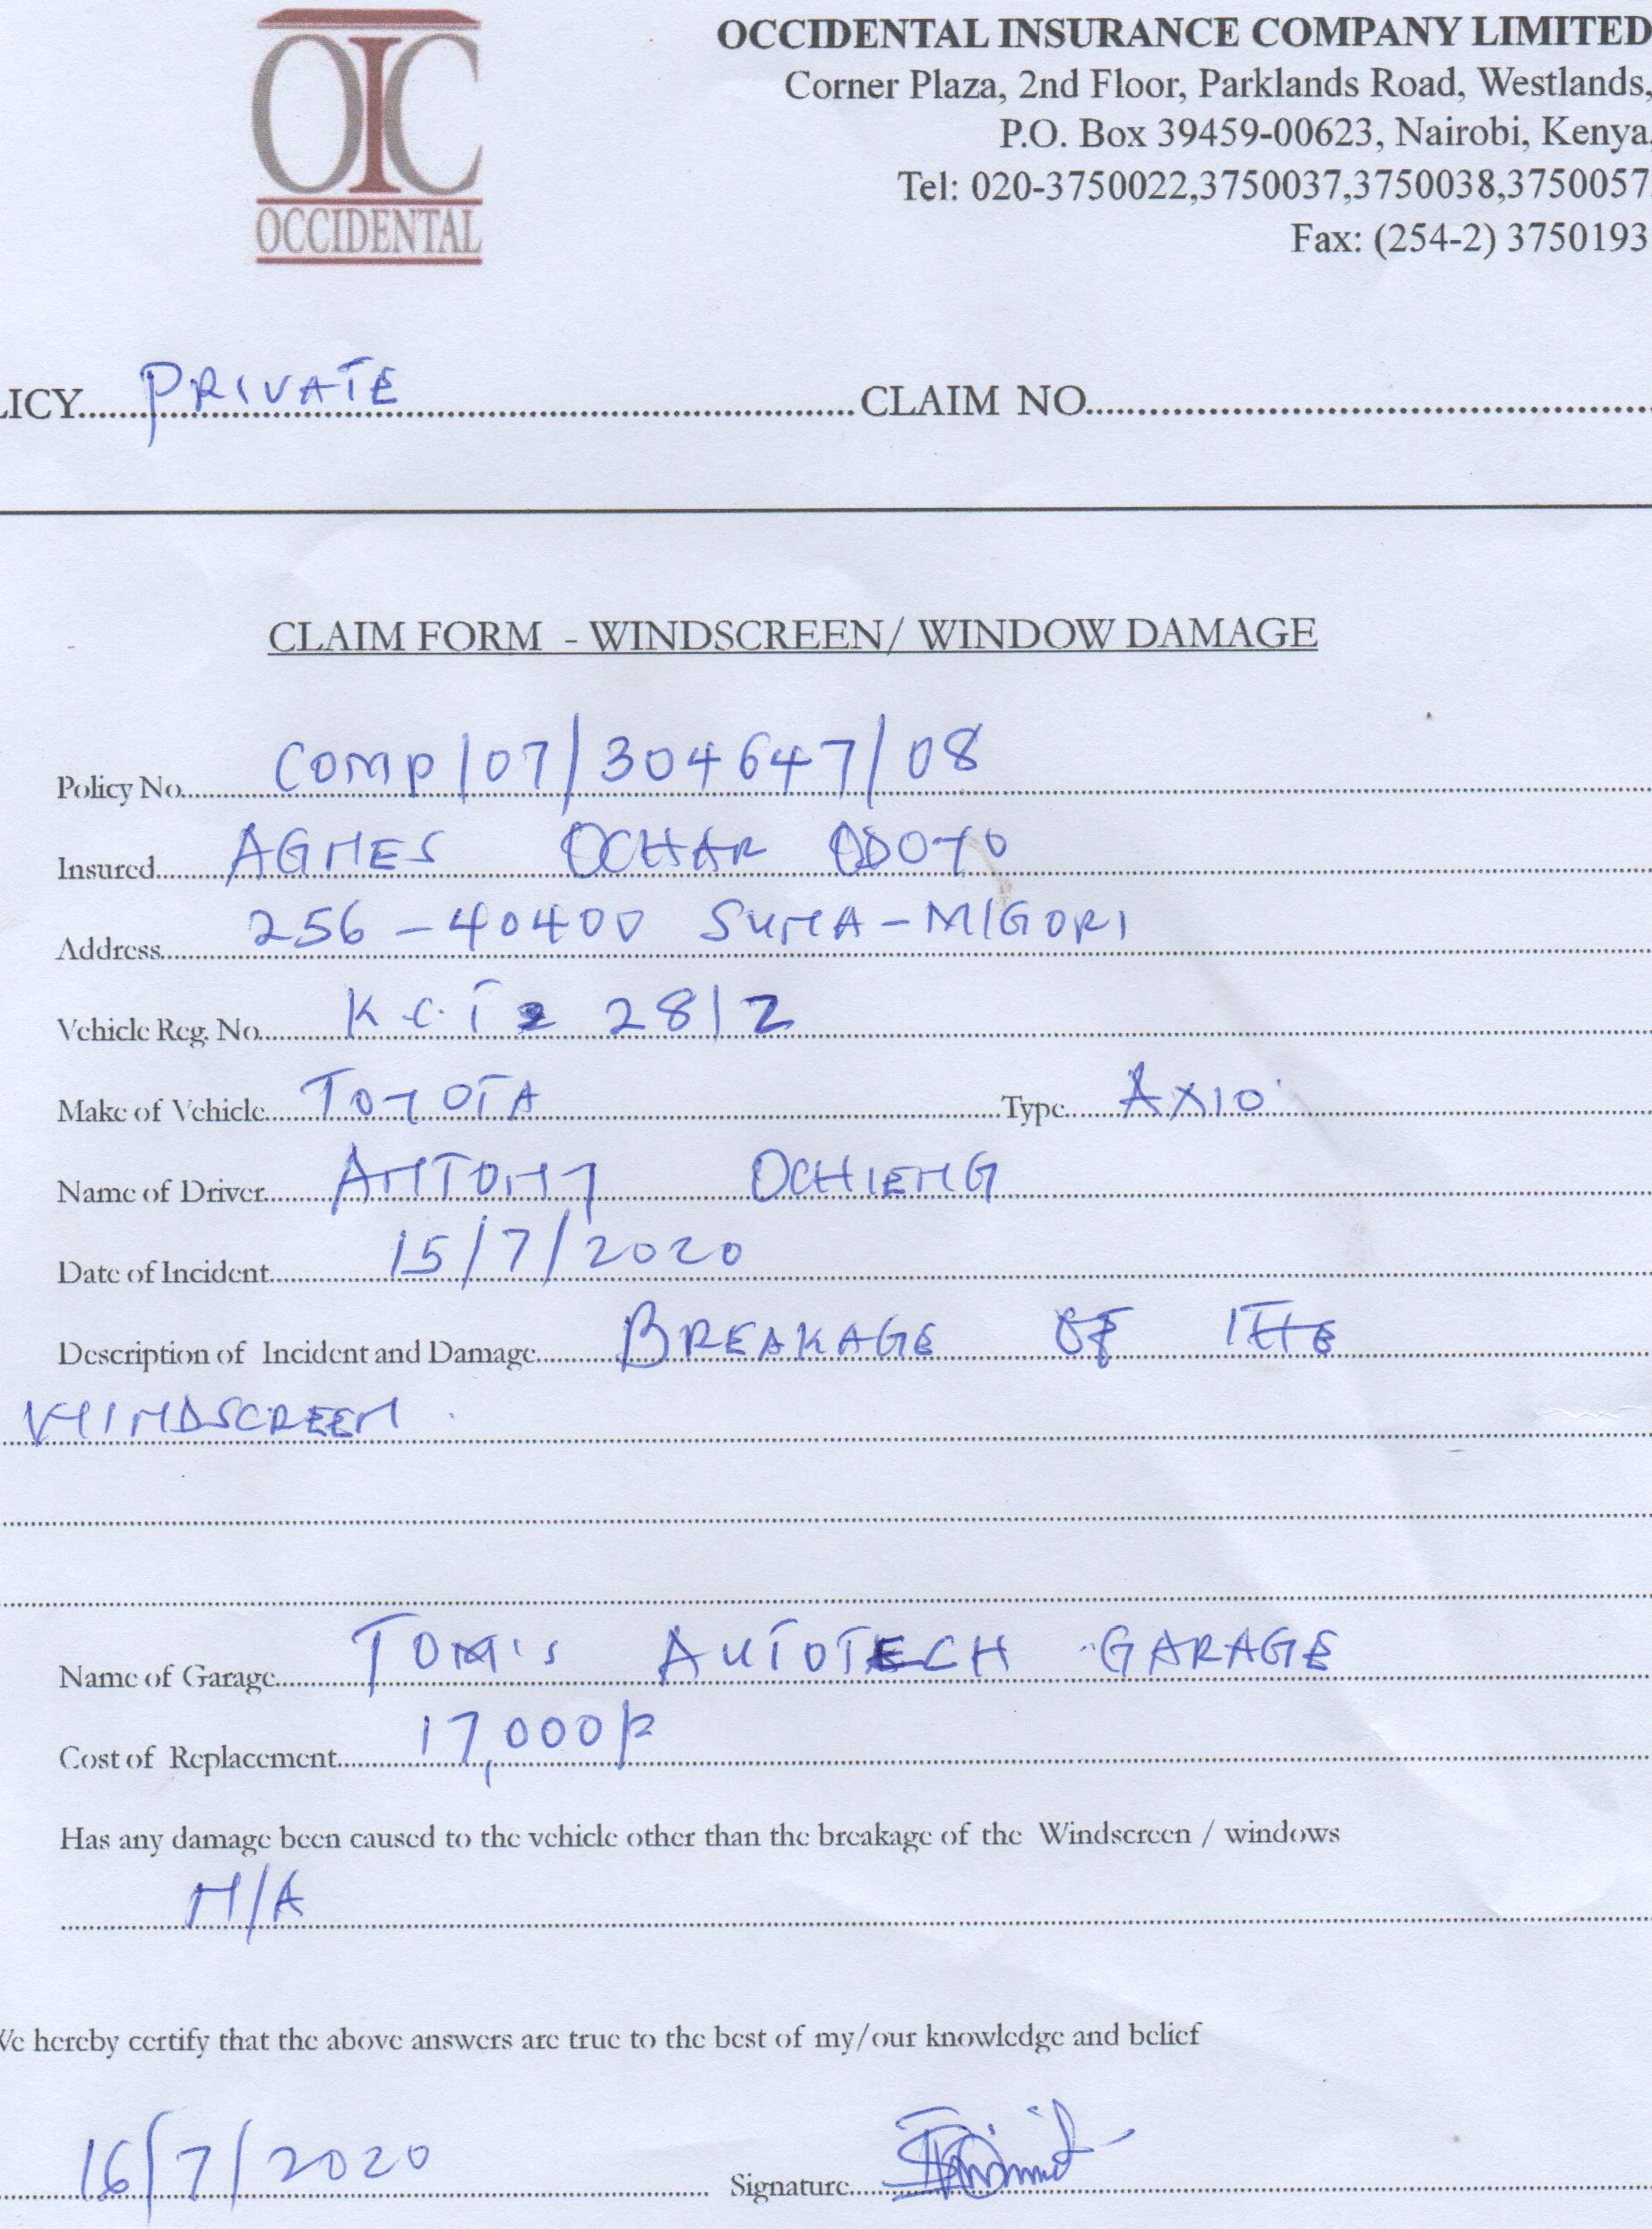 OIC
OCCIDENTAL
OCCIDENTAL INSURANCE COMPANY LIMITED
Corner Plaza, 2nd Floor, Parklands Road, Westlands,
P.O. Box 39459-00623, Nairobi, Kenya,
Tel: 020-3750022,3750037,3750038,3750057
Fax: (254-2) 3750193
LICY PRIVATE CLAIM NO.
CLAIM FORM - WINDSCREEN/ WINDOW DAMAGE
Policy No. COMP/07/304647/08
Insured AGNES OCHAR ODOYO
Address 256-40400 SUNA-MIGORI
Vehicle Reg. No. 281Z
Make of Vehicle TOYOTA Type AXIO
Name of Driver ANTONY OCHIENG
Date of Incident 15/7/2020
Description of Incident and Damage BREAKAGE OF THE
WINDSCREEN.
Name of Garage TOM'S AUTOTECH GARAGE
Cost of Replacement 17,000/=
Has any damage been caused to the vehicle other than the breakage of the Windscreen / windows
N/A
We hereby certify that the above answers are true to the best of my/our knowledge and belief
16/7/2020 Signature